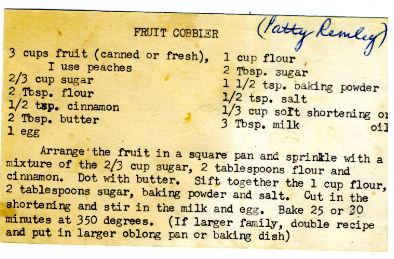 FRUIT COBBLER
(Patty Remley)
3 cups fruit (canned or fresh),
I use peaches
2/3 cup sugar
2 Tbsp. flour
1/2 tsp. cinnamon
2 Tbsp. butter
1 egg
1 cup flour
2 Tbsp. sugar
1 1/2 tsp. baking powder
1/2 tsp. salt
1/3 cup soft shortening or
oil
3 Tbsp. milk
Arrange the fruit in a square pan and sprinkle with a
mixture of the 2/3 cup sugar, 2 tablespoons flour and
cinnamon. Dot with butter. Sift together the 1 cup flour,
2 tablespoons sugar, baking powder and salt. Cut in the
shortening and stir in the milk and egg. Bake 25 or 30
minutes at 350 degrees. (If larger family, double recipe
and put in larger oblong pan or baking dish)